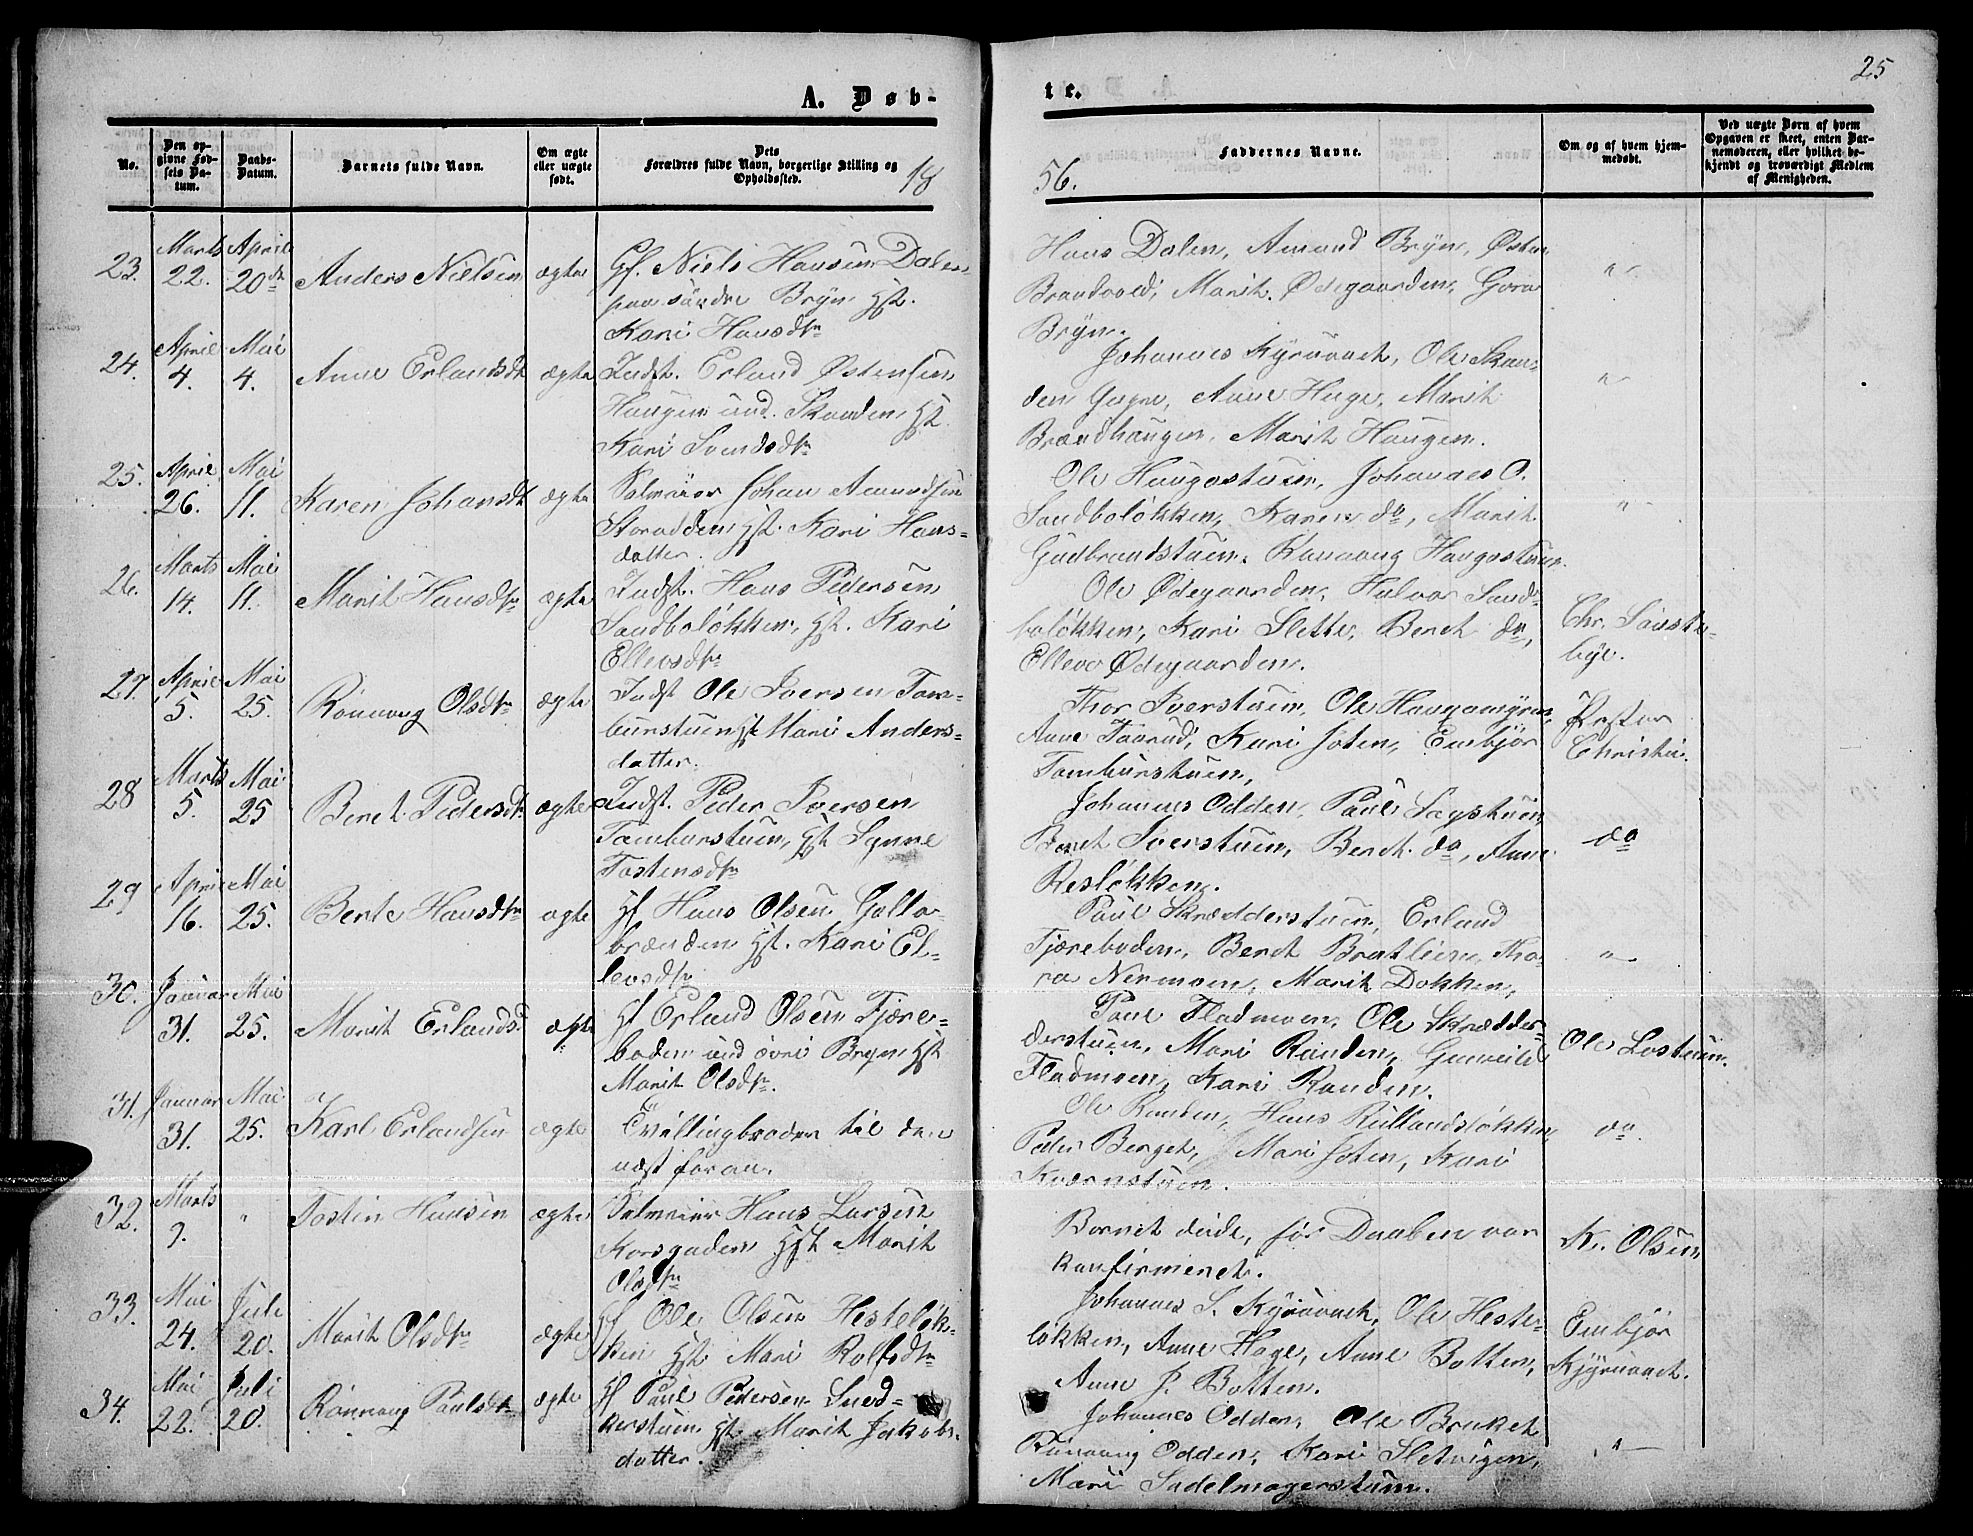 25
A. Døb-
te.
No.
Den op-
givne Fød-
sels Da-
tum.
Daabs-
Datum.
Barnets fulde Navn.
Om ægte
eller uægte
født.
Dets
Forældres fulde Navn, borgerlige Stilling og
Opholdssted.
18
56.
Faddernes Navne.
Om og af hvem hjem-
medøbt.
Ved uægte Børn af hvem
Opgaven er skeet, enten Bar-
nemoderen, eller hvilket be-
kjendt og troværdigt Medlem
af Menigheden.
23. Marts 22. April 20de Anders Nielsen ægte
Gf. Niels Hansen Dalen
paa søndre Bryn Hst.
Kari Hansdtr
Hans Dalen, Amund Bryn, Østen
Brandvold, Marit Ødegaarden, Gora
Bryn.
24. April 4. Mai 4. Anne Erlandsdt ægte
Indst. Erland Østensen
Haugen und. Skanden Hst.
Kari Svendsdtr
Johannes Kyruvadt, Ole Skan-
den, Anne Hage, Marit
Brændhaugen, Marit Haugen.
25. April 26. Mai 11. Karen Johansdt ægte
Selveier Johan Amundsen
Storødden Hst. Kari Hans-
datter.
Ole Haugastuen, Johannes O.
Sandboløkken, Karen do, Marit
Gudbrandstuen, Rønnaug Haugastuen.
26. Marts 14. Mai 11. Marit Hansdtr ægte
Indst. Hans Pedersen
Sandboløkken, Hst. Kari
Ellevsdtr
Ole Ødegaarden, Halvor Sand-
boløkken, Kari Slette, Beret do,
Ellev Ødegaarden.
Chr. Sønste-
bye.
27. April 5. Mai 25. Rønnaug Olsdtr ægte
Indst Ole Iversen Tam-
burstuen Hst Mari Anders-
datter.
Thor Iverstuen, Ole Haugamyren,
Anne Taarud, Kari Joten, Embjør
Tamburstuen,
Pastor
Christie.
28 Marts 5. Mai 25 Beret Pedersdt ægte
Indst. Peder Iversen
Tamburstuen, Hst Synne
Tostensdtr
Johannes Odden, Paul Sagstuen,
Beret Iverstuen, Beret do, Anne
Resløkken.
do
29 April 16. Mai 25. Berte Hansdtr ægte
Hf Hans Olsen Golla-
brænden Hst. Kari El-
levsdtr
Paul Skrædderstuen, Erland
Tjæreboden, Beret Bratlien, Tho-
ra Nermoen, Marit Dokken,
30. Januar 31. Mai 25. Marit Erlandsd ægte
Hf Erland Olsen Tjære-
boden und øvre Bryn Hst
Marit Olsdtr.
Paul Fladmoen, Ole Skrædder-
derstuen, Mari Randen, Gunveild
Fladmoen, Kari Randen.
Ole Lostuen.
31. Januar 31. Mai 25. Karl Erlandsen ægte
Tvillingbroder til den
næst foran.
Ole Randen, Hans Rullandsløkken,
Peder Berget, Mari Joten, Kari
Kværnstuen.
do.
32. Marts 9. " Tosten Hansen ægte
Selveier Hans Larsen
Korsgaden Hst Marit
Olsdtr
Barnet døde, før Daaben var
konfirmeret.
K. Olsen
33. Mai 24. Juli 20. Marit Olsdtr ægte
Hf Ole Olsen Hesteløk-
ken Hst Mari Rolfsdtr
Johannes S. Kyruvadt, Ole Heste-
løkken, Anne Hage, Anne Botten,
Anne J. Botten.
Embjør
Kjyruvadt.
34. Mai 22. Juli 20. Rønnaug Paulsdtr ægte
Hf Paul Pedersen Sned-
kerstuen Hst. Marit Jakobs-
datter.
Johannes Odden, Ole Bruket
Rønnaug Odden, Kari Sletvigen,
Mari Sadelmagerstuen.